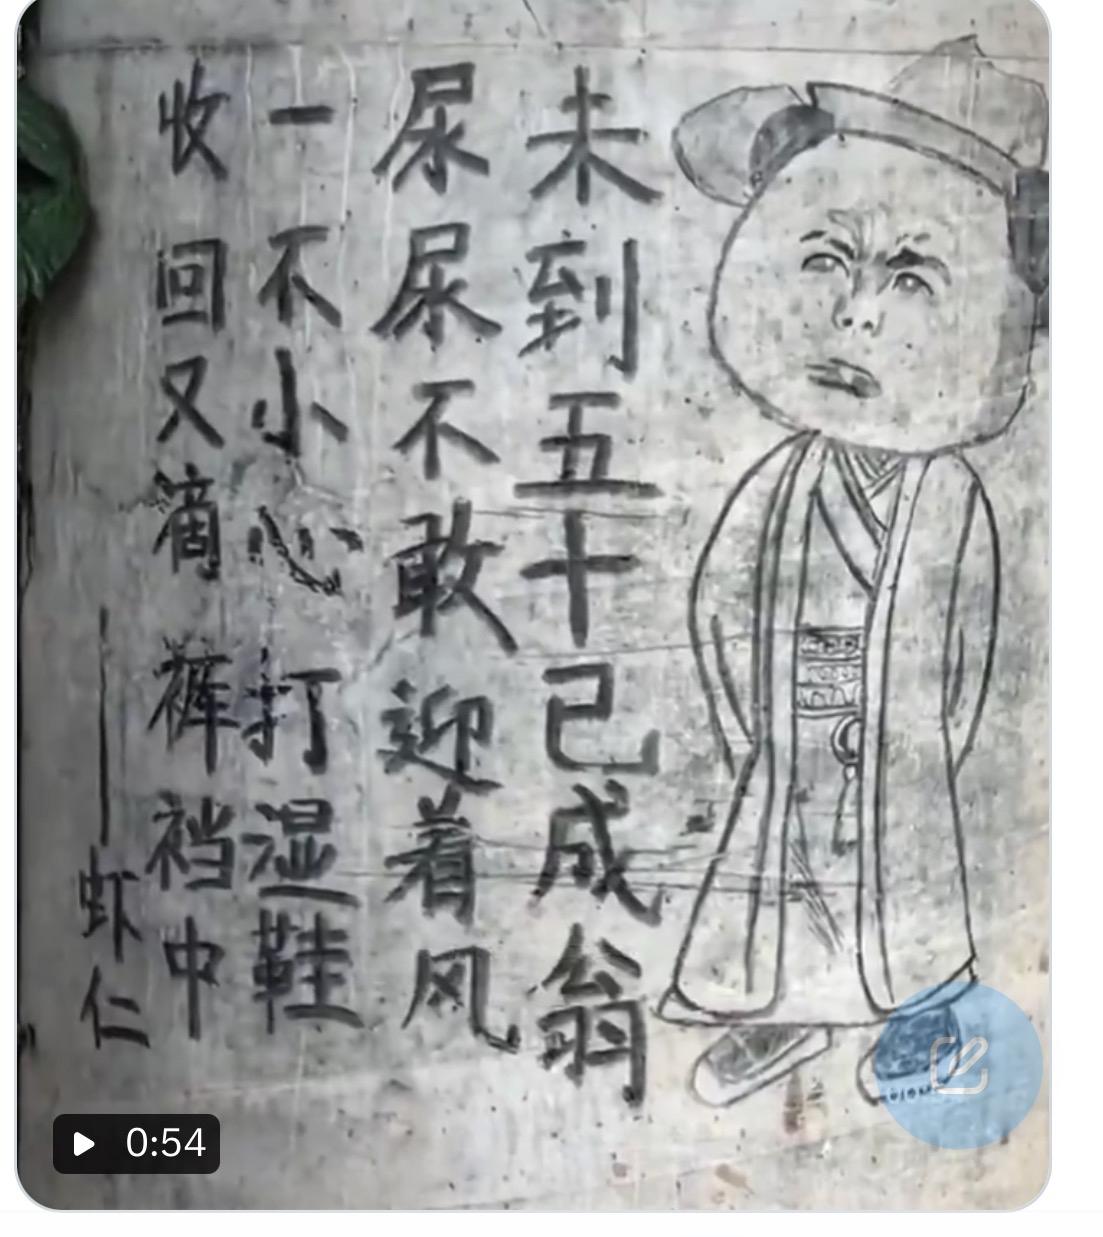 未到五十已成翁
尿尿不敢迎着风
一不小心打湿鞋
收回又滴裤裆中
——虾仁
0:54